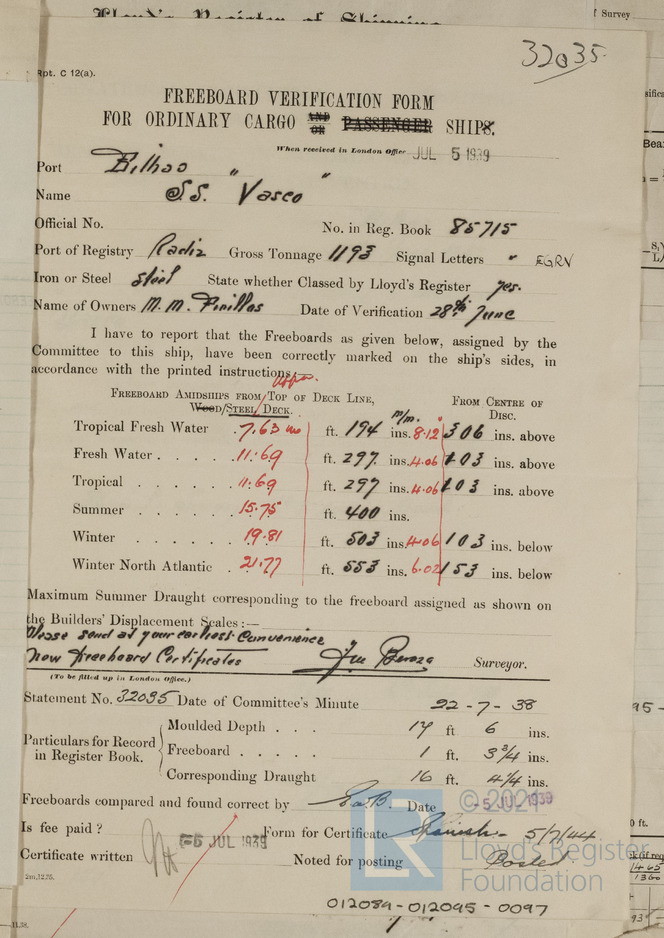 Lloyd's Register of Shipping
f Survey
32035
Rpt. C 12(a).
FREEBOARD VERIFICATION FORM
FOR ORDINARY CARGO AND OR PASSENGER SHIPS.
When received in London Office JUL 5 1939
Port Bilbao
Name S.S. "Vasco"
Official No. No. in Reg. Book 85715
Port of Registry Kadiz Gross Tonnage 1193 Signal Letters " EGRN
Iron or Steel Steel State whether Classed by Lloyd's Register yes.
Name of Owners M. M. Pinillos Date of Verification 28th June
I have to report that the Freeboards as given below, assigned by the
Committee to this ship, have been correctly marked on the ship's sides, in
accordance with the printed instructions.
Freeboard Amidships from Top of Deck Line, From Centre of
Wood/Steel Deck. m/m. Disc.
Tropical Fresh Water 7.63 ft. 194 ins. 8.12 306 ins. above
Fresh Water 11.69 ft. 297 ins. 4.06 103 ins. above
Tropical 11.69 ft. 297 ins. 4.06 103 ins. above
Summer 15.75 ft. 400 ins.
Winter 19.81 ft. 503 ins. 4.06 103 ins. below
Winter North Atlantic 21.77 ft. 553 ins. 6.02 153 ins. below
Maximum Summer Draught corresponding to the freeboard assigned as shown on
the Builders' Displacement Scales:—
Please send at your earliest convenience
new freeboard Certificates Surveyor.
(To be filled up in London Office.)
Statement No. 32035 Date of Committee's Minute 22-7-38
Particulars for Record in Register Book.
Moulded Depth 17 ft 6 ins.
Freeboard 1 ft. 3 3/4 ins.
Corresponding Draught 16 ft. 4 1/4 ins.
Freeboards compared and found correct by Date -5 JUL 1939
Is fee paid? 5 JUL 1939 Form for Certificate Spanish - 5/7/44
Certificate written Noted for posting Posted
2m,12,35.
© 2021
LR
Lloyd's Register
Foundation
012089-012095-0097